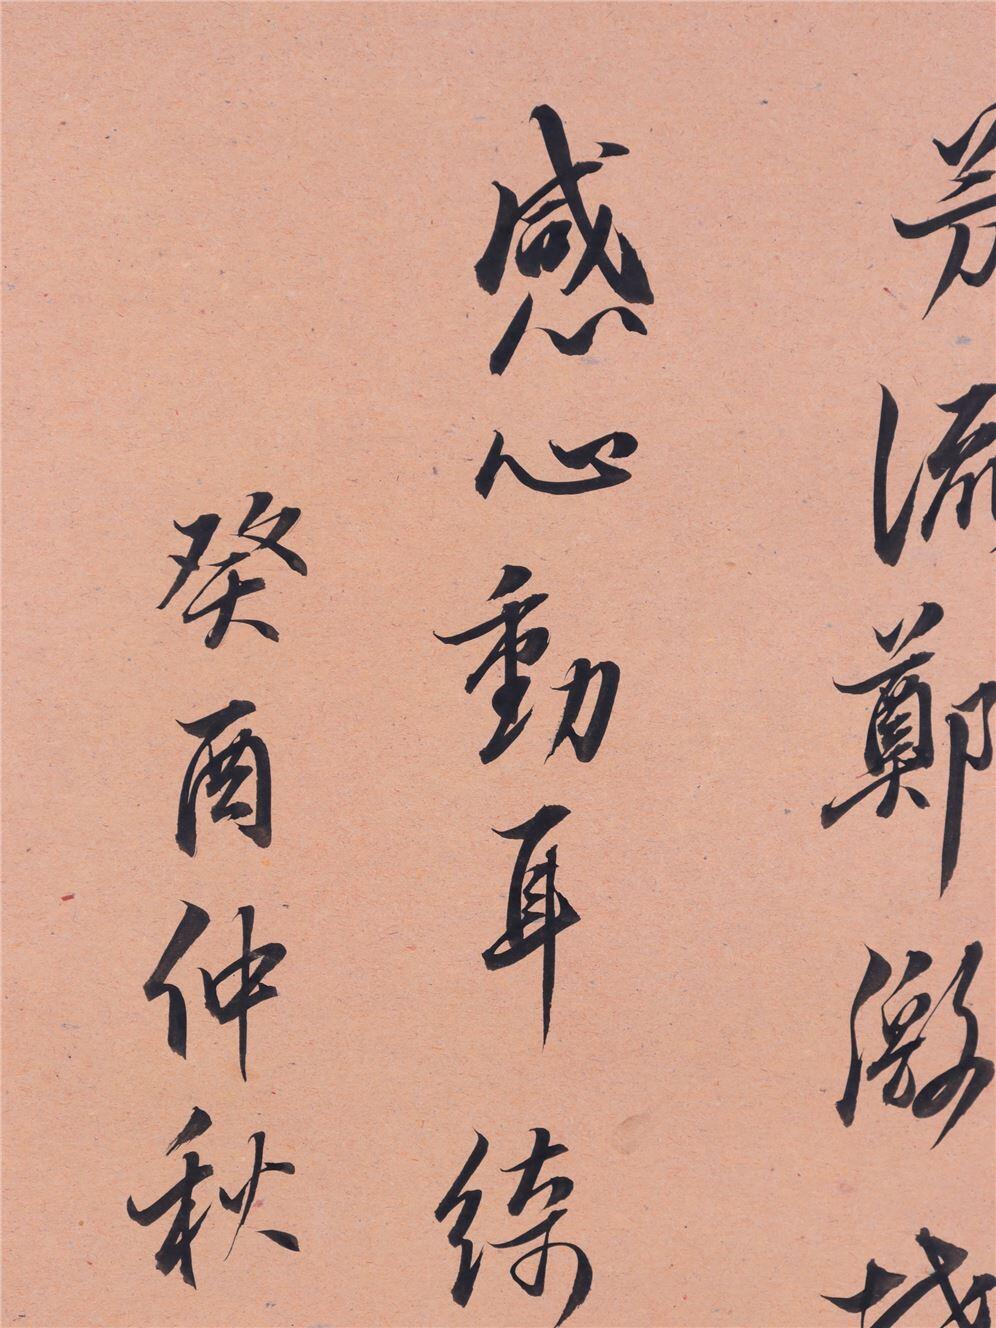 芳流鄭激城
感心動耳綺
癸酉仲秋